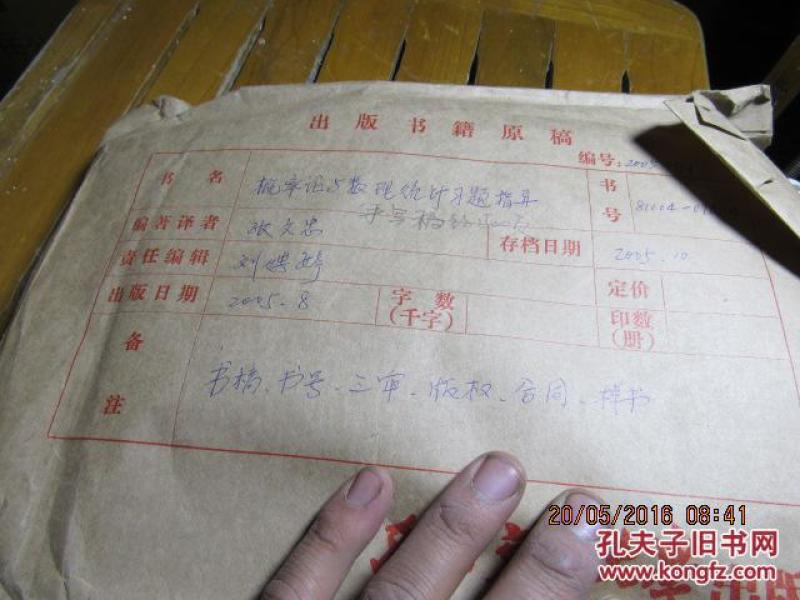 出版书籍原稿
编号: 2005
书名 概率论与数理统计习题指导 书号 81004-
手写稿
编著译者 张文忠 存档日期 2005.10
责任编辑 刘
定价
出版日期 2005.8 字数(千字) 印数(册)
备注 书稿、书号、三审、版权、合同、样书
出版
20/05/2016 08:41
孔夫子旧书网
www.kongfz.com